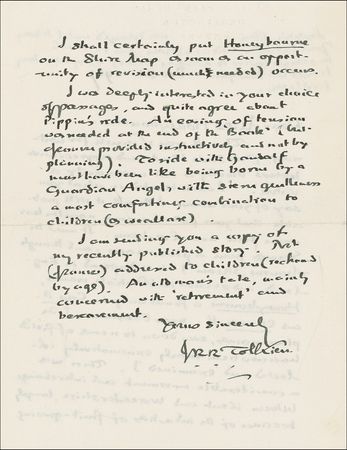 I shall certainly put Honeybourne
on the Shire Map as soon as an opport-
unity of revision (much needed) occurs.
I was deeply interested in your choice
of passages, and quite agree about
Pippin's ride. An easing of tension
was needed at the end of the 'Book' (but
of course provided instinctively and not by
planning). To ride with Gandalf
must have been like being borne by a
Guardian Angel, with stern gentleness
a most comforting combination to
children (as we all are).
I am sending you a copy of
my recently published story. Not
(of course) addressed to children (reckoned
by age). An old man's tale, mainly
concerned with 'retirement' and
bereavement.
Yours sincerely
J.R.R. Tolkien.